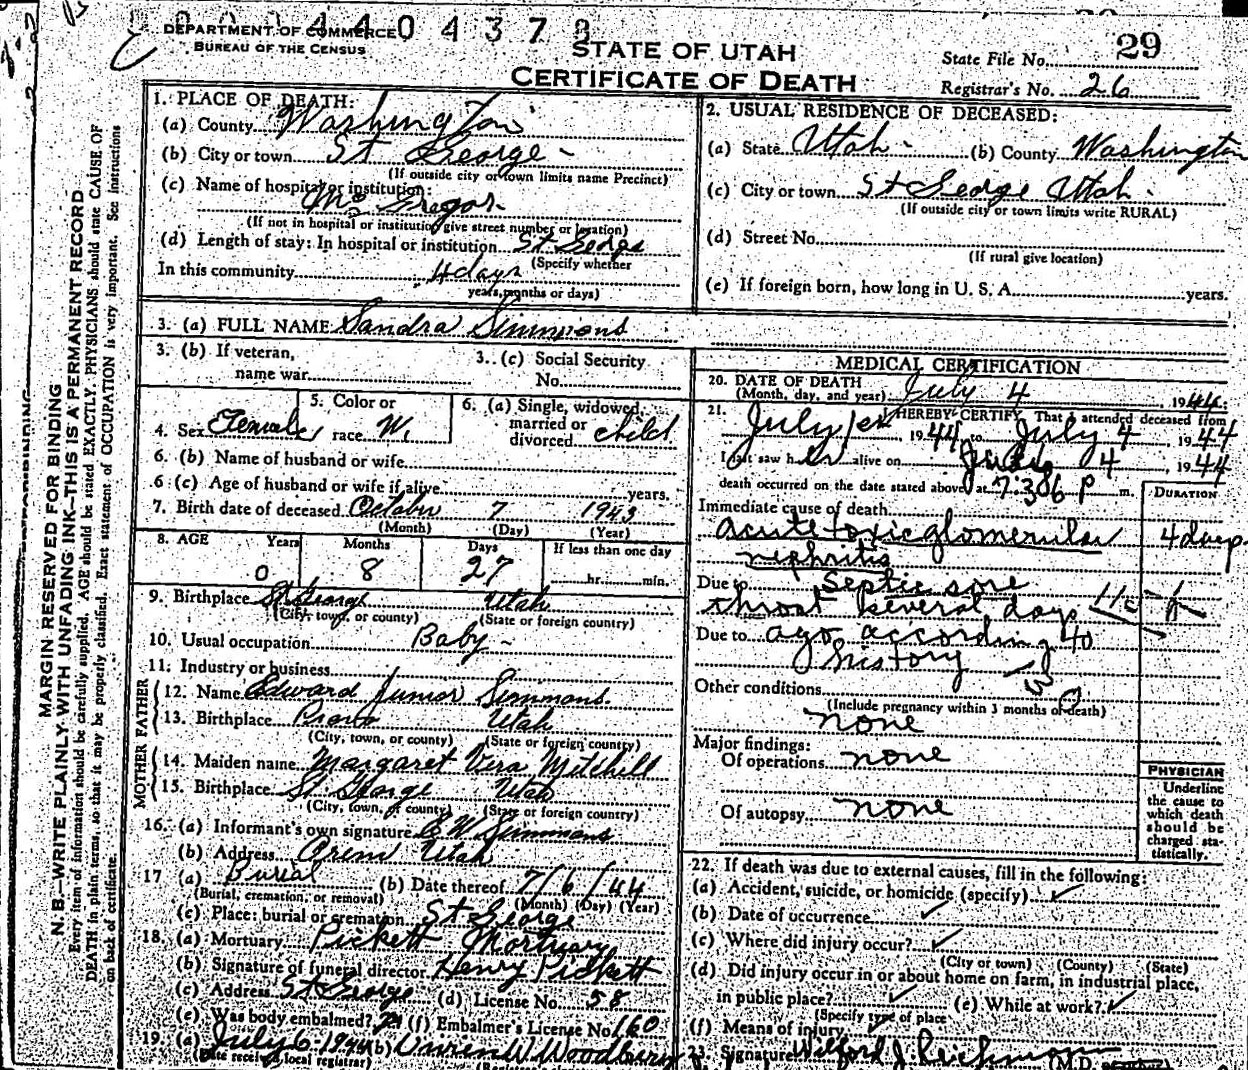 4 4 0 4 3 7 8
DEPARTMENT OF COMMERCE
BUREAU OF THE CENSUS
STATE OF UTAH
CERTIFICATE OF DEATH
State File No. 29
Registrar's No. 26
MARGIN RESERVED FOR BINDING
N. B.—WRITE PLAINLY, WITH UNFADING INK—THIS IS A PERMANENT RECORD
Every item of information should be carefully supplied. AGE should be stated EXACTLY. PHYSICIANS should state CAUSE OF
DEATH in plain terms, so that it may be properly classified. Exact statement of OCCUPATION is very important. See instructions
on back of certificate.
1. PLACE OF DEATH:
(a) County Washington
(b) City or town St George
(If outside city or town limits name Precinct)
(c) Name of hospital or institution:
McGregor
(If not in hospital or institution give street number or location)
(d) Length of stay: In hospital or institution St George
(Specify whether
In this community 4 days
years, months or days)
2. USUAL RESIDENCE OF DECEASED:
(a) State Utah (b) County Washington
(c) City or town St George Utah
(If outside city or town limits write RURAL)
(d) Street No.
(If rural give location)
(e) If foreign born, how long in U. S. A. years.
3. (a) FULL NAME Sandra Simmons
3. (b) If veteran, name war
3. (c) Social Security No.
4. Sex Female
5. Color or race W.
6. (a) Single, widowed, married or divorced child
6. (b) Name of husband or wife
6 (c) Age of husband or wife if alive years.
7. Birth date of deceased October 7 1943
(Month) (Day) (Year)
8. AGE Years Months Days If less than one day
0 8 27 hr. min.
9. Birthplace St George Utah
(City, town, or county) (State or foreign country)
10. Usual occupation Baby
11. Industry or business
FATHER
12. Name Edward Junior Simmons.
13. Birthplace Provo Utah
(City, town, or county) (State or foreign country)
MOTHER
14. Maiden name Margaret Vera Mitchell
15. Birthplace St George Utah
(City, town, or county) (State or foreign country)
16. (a) Informant's own signature Simmons
(b) Address Orem Utah
17 (a) Burial (b) Date thereof 7/6/44
(Burial, cremation, or removal) (Month) (Day) (Year)
(c) Place: burial or cremation St George
18. (a) Mortuary Pickett Mortuary
(b) Signature of funeral director Henry Pickett
(c) Address St George (d) License No. 58
(e) Was body embalmed? (f) Embalmer's License No. 160
19. (a) July 6-1944 (b) W. Woodbury
(Date received local registrar)
MEDICAL CERTIFICATION
20. DATE OF DEATH
(Month, day, and year) July 4, 1944.
21. I HEREBY CERTIFY, That I attended deceased from
July 1st, 1944 to July 4, 1944
I last saw her alive on July 4, 1944
death occurred on the date stated above, at 7:30 P m.
DURATION
Immediate cause of death
acute toxic glomerular 4 days
nephritis
Due to Septic sore
throat several days
Due to ago according to
history
Other conditions
(Include pregnancy within 3 months of death)
none
Major findings:
Of operations none
Of autopsy none
PHYSICIAN
Underline
the cause to
which death
should be
charged sta-
tistically.
22. If death was due to external causes, fill in the following:
(a) Accident, suicide, or homicide (specify)
(b) Date of occurrence
(c) Where did injury occur?
(City or town) (County) (State)
(d) Did injury occur in or about home on farm, in industrial place,
in public place? (e) While at work?
(Specify type of place
(f) Means of injury
23. Signature Wilford J. Reichmann (M.D.